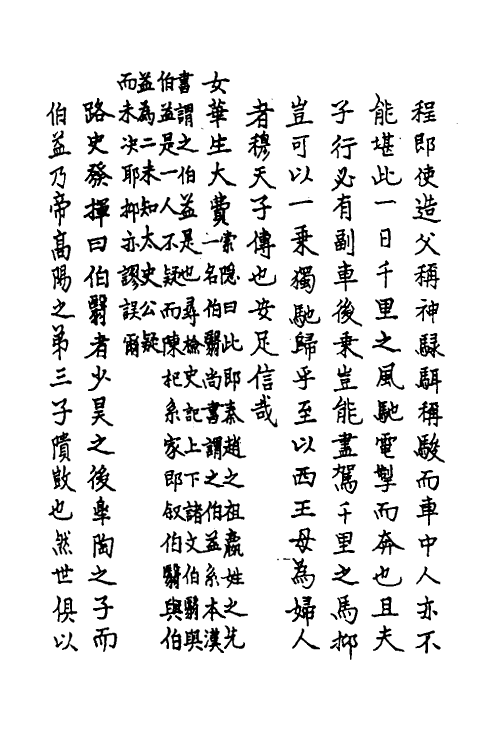 程即使造父稱神騄駬稱駿而車中人亦不
能堪此一日千里之風馳電掣而奔也且夫
子行必有副車後乘豈能盡駕千里之馬抑
豈可以一乘獨馳歸乎至以西王母為婦人
者穆天子傳也安足信哉
女華生大費
索隱曰此即秦趙之祖嬴姓之先
一名伯翳尚書謂之伯益系本漢
書謂之伯益是也尋檢史記上下諸文伯翳與
伯益是一人不疑而陳杞系家即叙伯翳與伯
益為二未知太史公疑
而未决耶抑亦謬誤爾
路史發揮曰伯翳者少昊之後臯陶之子而
伯益乃帝高陽之第三子隤敳也然世俱以